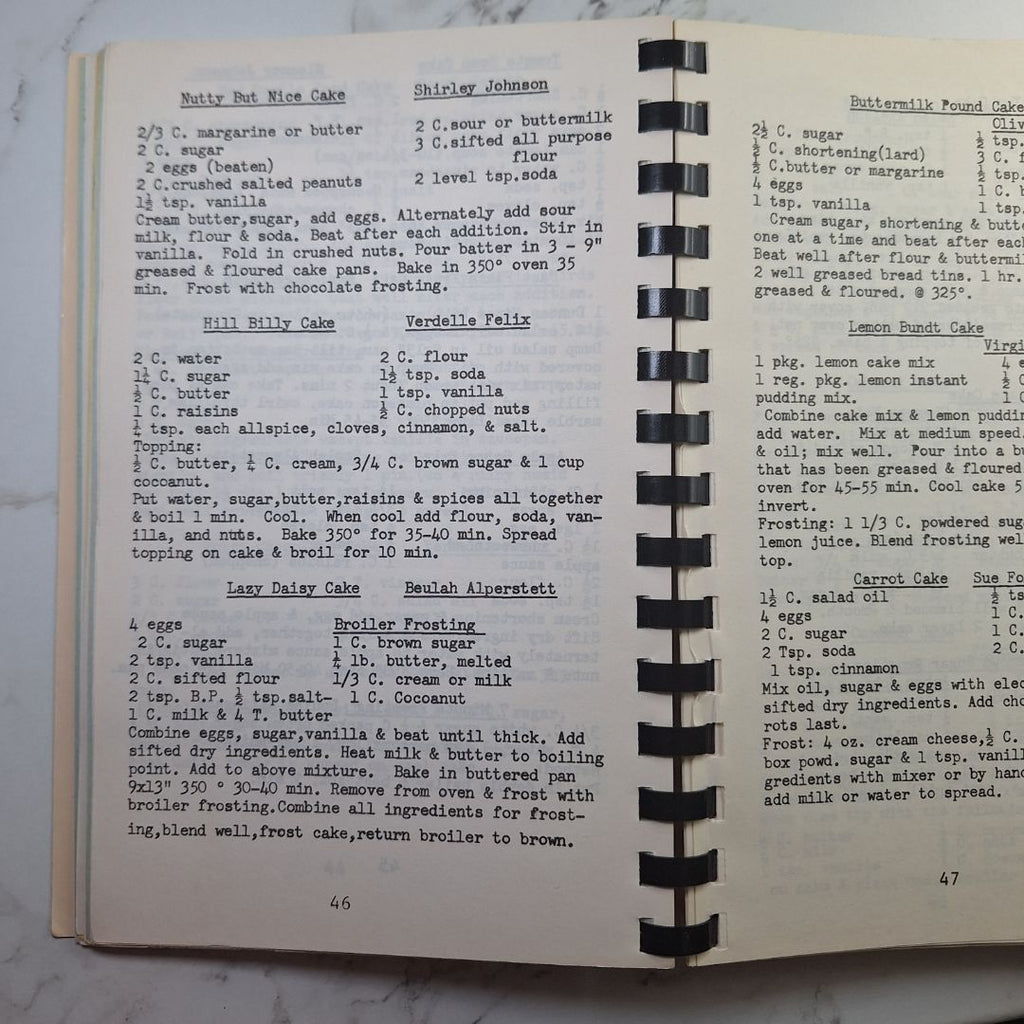 Nutty But Nice Cake Shirley Johnson
2/3 C. margarine or butter 2 C.sour or buttermilk
2 C. sugar 3 C.sifted all purpose
2 eggs (beaten) flour
2 C.crushed salted peanuts 2 level tsp.soda
1½ tsp. vanilla
Cream butter,sugar, add eggs. Alternately add sour
milk, flour & soda. Beat after each addition. Stir in
vanilla. Fold in crushed nuts. Pour batter in 3 - 9"
greased & floured cake pans. Bake in 350° oven 35
min. Frost with chocolate frosting.
Hill Billy Cake Verdelle Felix
2 C. water 2 C. flour
1¼ C. sugar 1½ tsp. soda
½ C. butter 1 tsp. vanilla
1 C. raisins ½ C. chopped nuts
¼ tsp. each allspice, cloves, cinnamon, & salt.
Topping:
½ C. butter, ¼ C. cream, 3/4 C. brown sugar & 1 cup
cocoanut.
Put water, sugar,butter,raisins & spices all together
& boil 1 min. Cool. When cool add flour, soda, van-
illa, and nuts. Bake 350° for 35-40 min. Spread
topping on cake & broil for 10 min.
Lazy Daisy Cake Beulah Alperstett
4 eggs Broiler Frosting
2 C. sugar 1 C. brown sugar
2 tsp. vanilla ¼ lb. butter, melted
2 C. sifted flour 1/3 C. cream or milk
2 tsp. B.P. ½ tsp.salt- 1 C. Cocoanut
1 C. milk & 4 T. butter
Combine eggs, sugar,vanilla & beat until thick. Add
sifted dry ingredients. Heat milk & butter to boiling
point. Add to above mixture. Bake in buttered pan
9x13" 350 ° 30-40 min. Remove from oven & frost with
broiler frosting.Combine all ingredients for frost-
ing,blend well,frost cake,return broiler to brown.
46
Buttermilk Pound Cake
Oliv
2½ C. sugar ½ tsp.
½ C. shortening(lard) 3 C. f
½ C.butter or margarine ½ tsp.
4 eggs 1 C. b
1 tsp. vanilla 1 tsp.
Cream sugar, shortening & butte
one at a time and beat after each
Beat well after flour & buttermil
2 well greased bread tins. 1 hr.
greased & floured. @ 325°.
Lemon Bundt Cake
Virgi
1 pkg. lemon cake mix 4 e
1 reg. pkg. lemon instant ½ C
pudding mix. 1 C
Combine cake mix & lemon puddin
add water. Mix at medium speed.
& oil; mix well. Pour into a bu
that has been greased & floured
oven for 45-55 min. Cool cake 5
invert.
Frosting: 1 1/3 C. powdered sug
lemon juice. Blend frosting wel
top.
Carrot Cake Sue Fo
1½ C. salad oil ½ ts
4 eggs 1 C.
2 C. sugar 1 C.
2 Tsp. soda 2 C.
1 tsp. cinnamon
Mix oil, sugar & eggs with elec
sifted dry ingredients. Add cho
rots last.
Frost: 4 oz. cream cheese,½ C.
box powd. sugar & 1 tsp. vanill
gredients with mixer or by hand
add milk or water to spread.
47